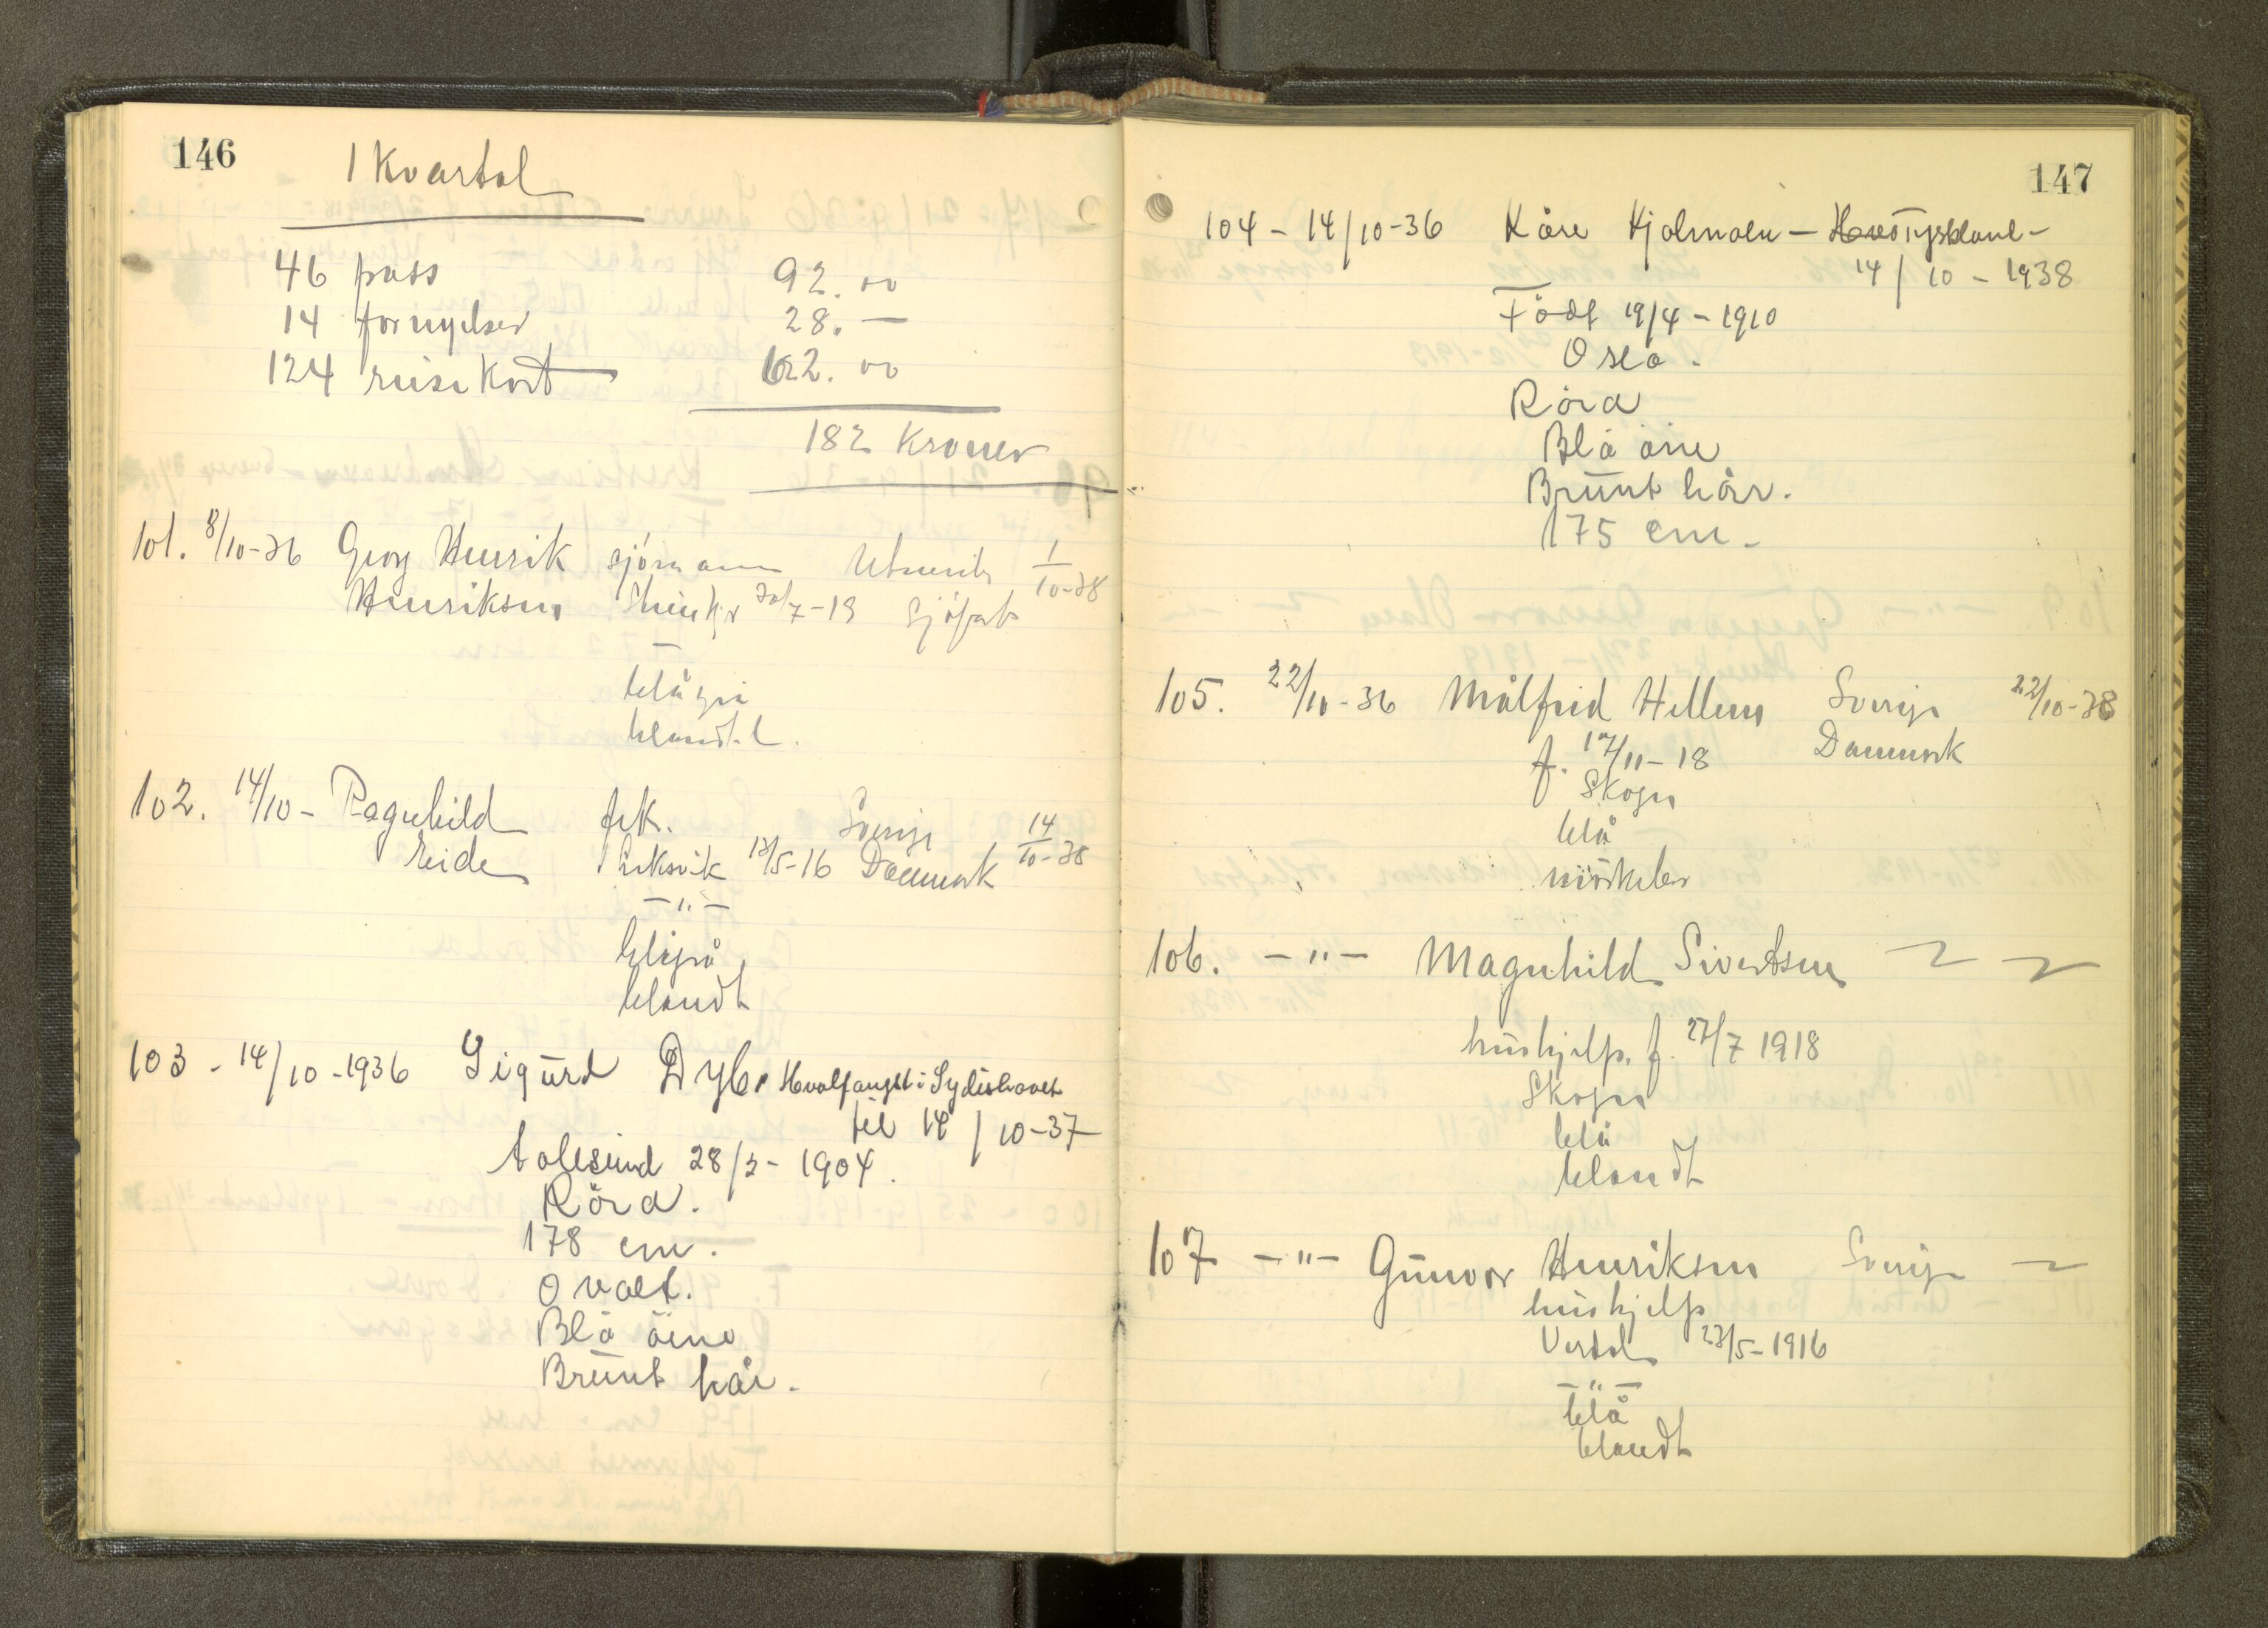 146
1 Kvartal
46 pass 92.00
14 fornyelser 28.—
124 reisekort 62.00
182 Kroner
101. 8/10-36 Georg Henrik sjömann Utenriks 1/10-38
Henriksen Steinkjer 30/7-19 Sjöfart
blågrå
blondt.
102. 14/10- Ragnhild frk. Sverige 14/10-38
Eide Leksvik 13/5-16 Danmark
—"—
blågrå
blondt
103 - 14/10-1936 Sigurd Dyb. Hvalfangst i Sydishavet
til 14/10-37
Aalesund 28/3-1904.
Röra.
178 cm.
Ovalt.
Blå öine
Brunt hår.
147
104 - 14/10-36 Kåre Hjalmoen - Tyskland -
14/10-1938
Födt 19/4-1910
Oslo.
Röra
Blå öine
Brunt hår.
175 cm.
105. 22/10-36 Målfrid Hellem Sverige 22/10-38
f. 17/11-18 Danmark
Skogn
blå
mörkebl
106. —"— Magnhild Sivertsen
hushjelp. f. 27/7 1918
Skogn
blå
blondt
107 —"— Gunvor Henriksen Sverige
hushjelp
Verdal 23/5-1916
—"—
blå
blondt